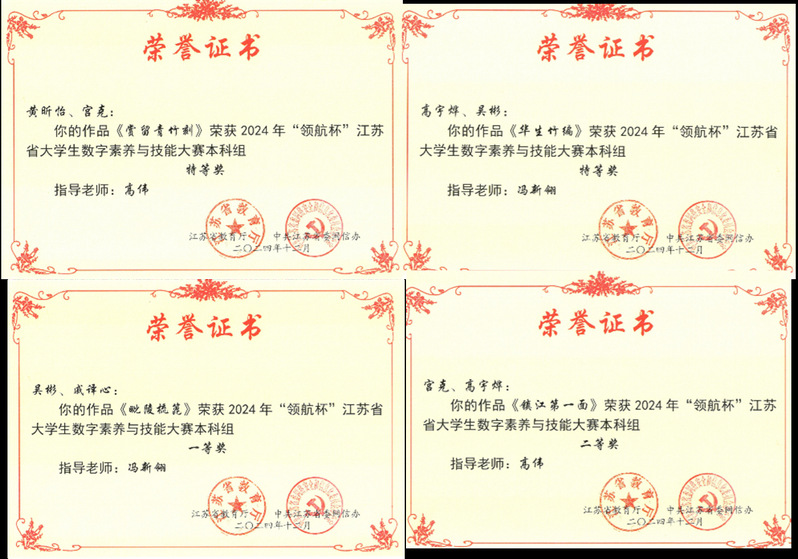 荣誉证书
黄昕怡、宫克：
你的作品《賞留青竹刻》荣获 2024 年“领航杯”江苏
省大学生数字素养与技能大赛本科组
特等奖
指导老师：高伟
江苏省教育厅
江苏省教育厅 中共江苏省委网信办
二〇二四年十二月
荣誉证书
高宇烨、吴彬：
你的作品《华生竹编》荣获 2024 年“领航杯”江苏省
大学生数字素养与技能大赛本科组
特等奖
指导老师：冯新翎
江苏省教育厅
江苏省教育厅 中共江苏省委网信办
二〇二四年十二月
荣誉证书
吴彬、戚译心：
你的作品《毗陵梳篦》荣获 2024 年“领航杯”江苏省
大学生数字素养与技能大赛本科组
一等奖
指导老师：冯新翎
江苏省教育厅
江苏省教育厅 中共江苏省委网信办
二〇二四年十二月
荣誉证书
宫克、高宇烨：
你的作品《镇江第一面》荣获 2024 年“领航杯”江苏
省大学生数字素养与技能大赛本科组
二等奖
指导老师：高伟
江苏省教育厅
江苏省教育厅 中共江苏省委网信办
二〇二四年十二月